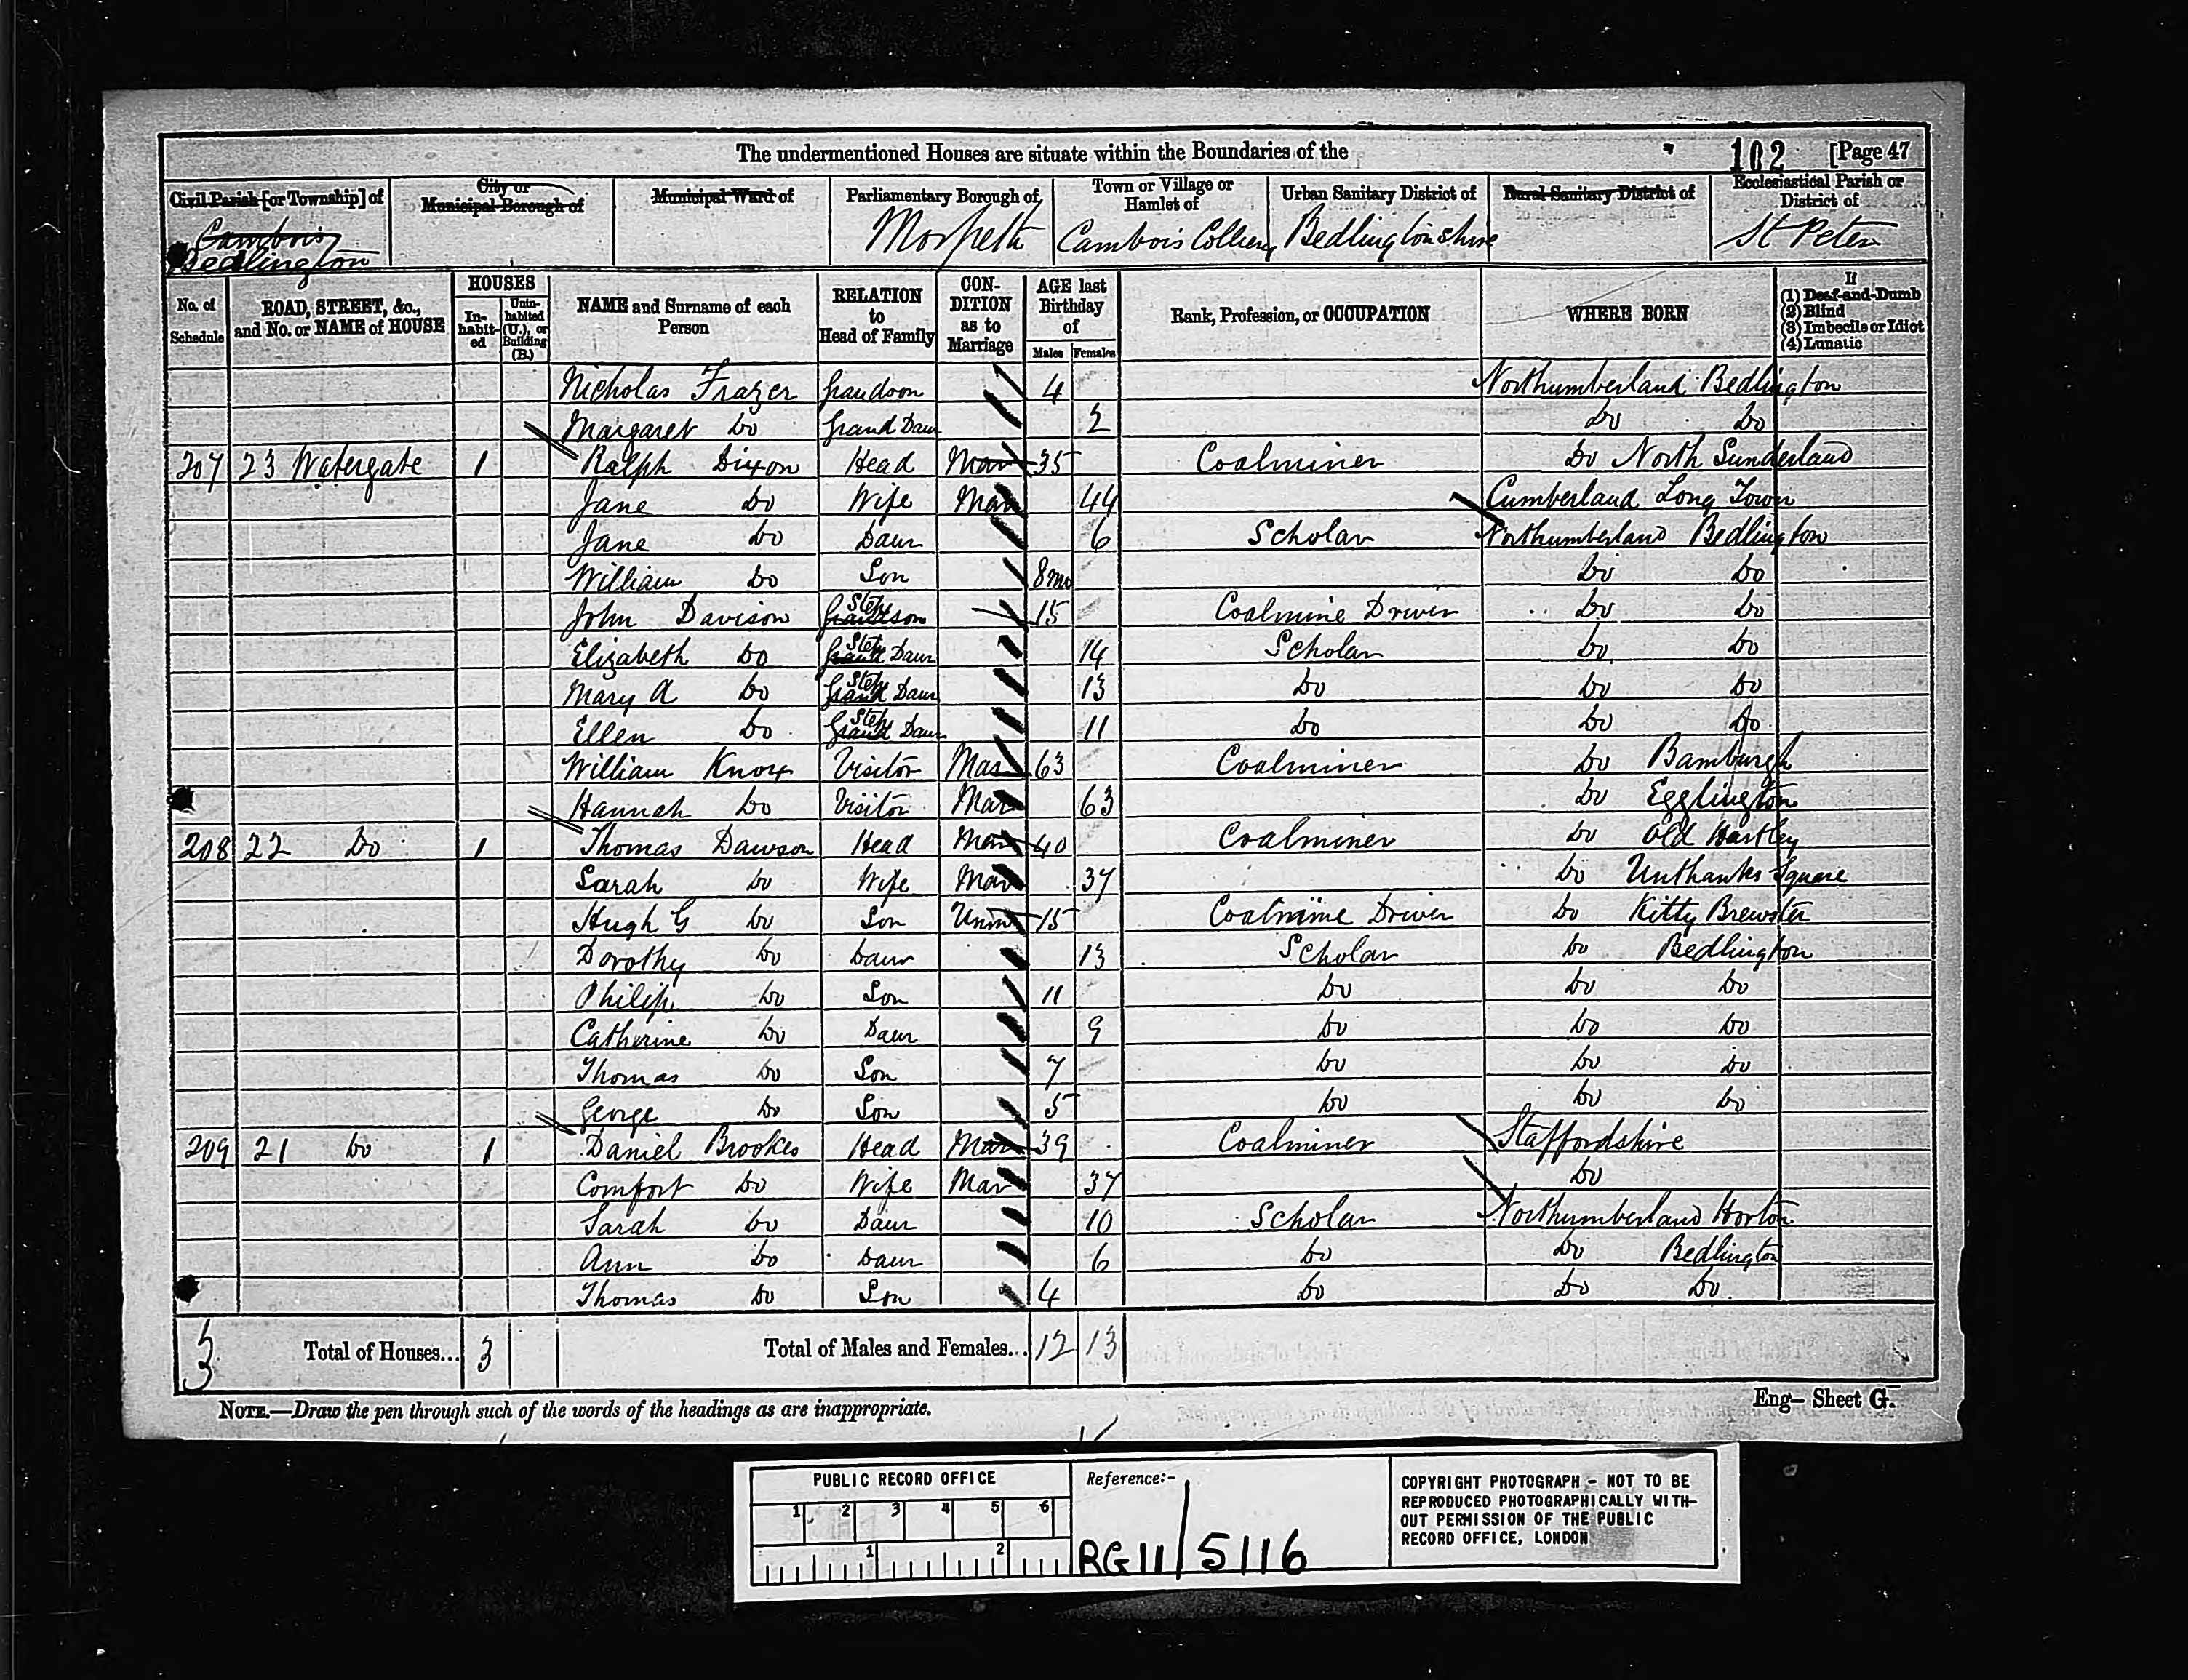 The undermentioned Houses are situate within the Boundaries of the 102 [Page 47
Civil Parish [or Township] of City or Municipal Borough of Municipal Ward of Parliamentary Borough of Town or Village or Hamlet of Urban Sanitary District of Rural Sanitary District of Ecclesiastical Parish or District of
Cambois Bedlington Morpeth Cambois Colliery Bedlingtonshire St Peter
No. of Schedule ROAD, STREET, &c., and No. or NAME of HOUSE HOUSES Inhabited Uninhabited (U.), or Building (B.) NAME and Surname of each Person RELATION to Head of Family CONDITION as to Marriage AGE last Birthday of Males Females Rank, Profession, or OCCUPATION WHERE BORN If (1) Deaf-and-Dumb (2) Blind (3) Imbecile or Idiot (4) Lunatic
Nicholas Frazer Grandson 4 Northumberland Bedlington
Margaret Do Grand Daur 2 Do Do
207 23 Watergate 1 Ralph Dixon Head Mar 35 Coalminer Do North Sunderland
Jane Do Wife Mar 44 Cumberland Long Town
Jane Do Daur 6 Scholar Northumberland Bedlington
William Do Son 8mo Do Do
John Davison Grandson Step 15 Coalmine Driver Do Do
Elizabeth Do Grand Step Daur 14 Scholar Do Do
Mary A Do Grand Step Daur 13 Do Do Do
Ellen Do Grand Step Daur 11 Do Do Do
William Knox Visitor Mar 63 Coalminer Do Bamburgh
Hannah Do Visitor Mar 63 Do Egglington
208 22 Do 1 Thomas Dawson Head Mar 40 Coalminer Do Old Hartley
Sarah Do Wife Mar 37 Do Unthanks Square
Hugh G Do Son Unm 15 Coalmine Driver Do Kitty Brewster
Dorothy Do Daur 13 Scholar Do Bedlington
Philip Do Son 11 Do Do Do
Catherine Do Daur 9 Do Do Do
Thomas Do Son 7 Do Do Do
George Do Son 5 Do Do Do
209 21 Do 1 Daniel Brookes Head Mar 39 Coalminer Staffordshire
Comfort Do Wife Mar 37 Do
Sarah Do Daur 10 Scholar Northumberland Horton
Ann Do Daur 6 Do Do Bedlington
Thomas Do Son 4 Do Do Do
3 Total of Houses... 3 Total of Males and Females... 12 13
NOTE.—Draw the pen through such of the words of the headings as are inappropriate.
Eng– Sheet G.
PUBLIC RECORD OFFICE
1 2 3 4 5 6
1 2
Reference:-
RG11/5116
COPYRIGHT PHOTOGRAPH - NOT TO BE
REPRODUCED PHOTOGRAPHICALLY WITH-
OUT PERMISSION OF THE PUBLIC
RECORD OFFICE, LONDON